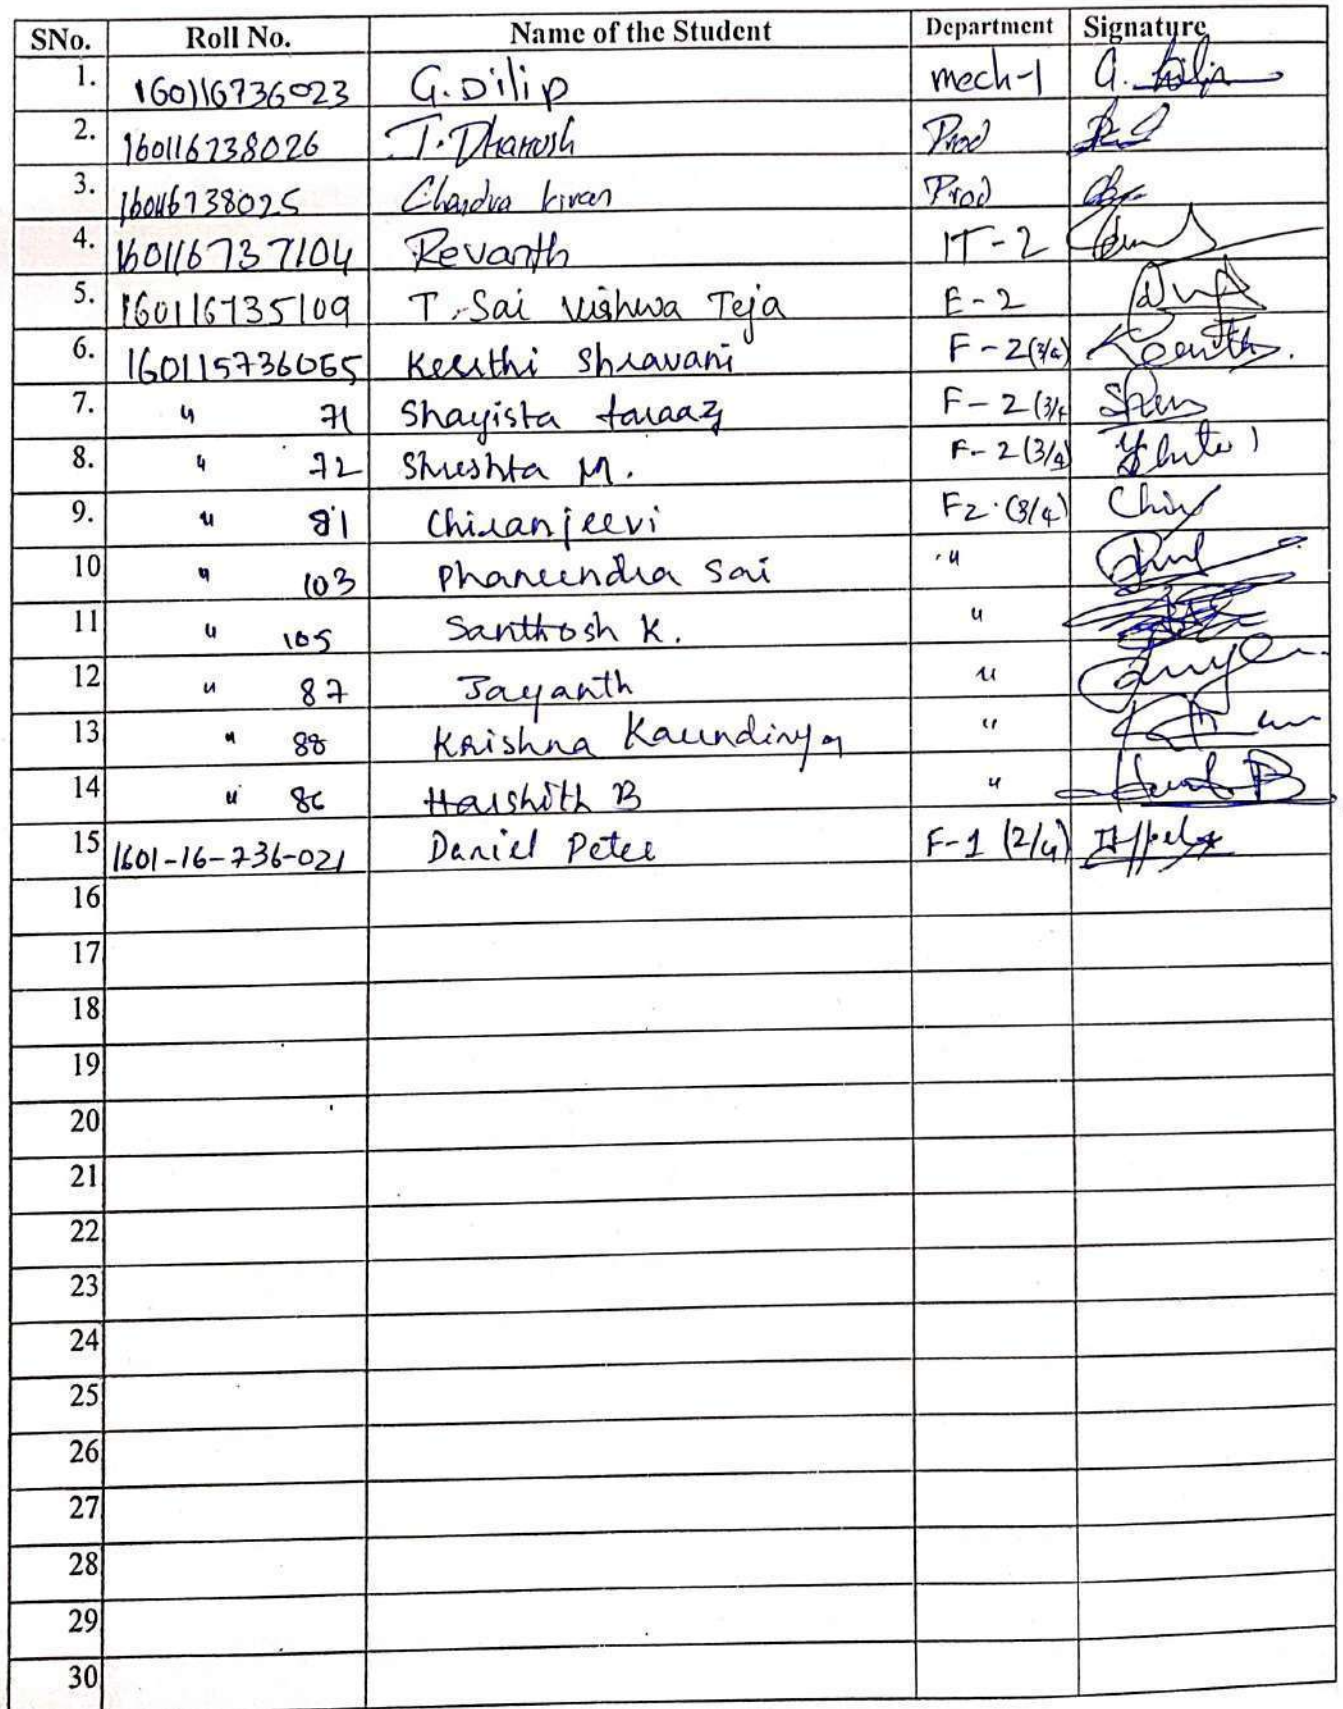 SNo. Roll No. Name of the Student Department Signature
1. 160116736023 G. Dilip mech-1 G. Dilip
2. 160116738026 J. Dhanush Prod
3. 160116738025 Chandra kiran Prod
4. 160116737104 Revanth IT-2
5. 160116735109 T. Sai Vishwa Teja E-2
6. 160115736065 Keerthi Shravani F-2 (3/4)
7. " 71 Shayista faraaz F-2 (3/4
8. " 72 Shreshta M. F-2 (3/4)
9. " 81 Chiranjeevi F2 (3/4)
10 " 103 Phaneendra Sai "
11 " 105 Santhosh K. "
12 " 87 Jayanth "
13 " 88 Krishna Kaundinya "
14 " 86 Harshith B "
15 1601-16-736-021 Daniel Peter F-1 (2/4)
16
17
18
19
20
21
22
23
24
25
26
27
28
29
30